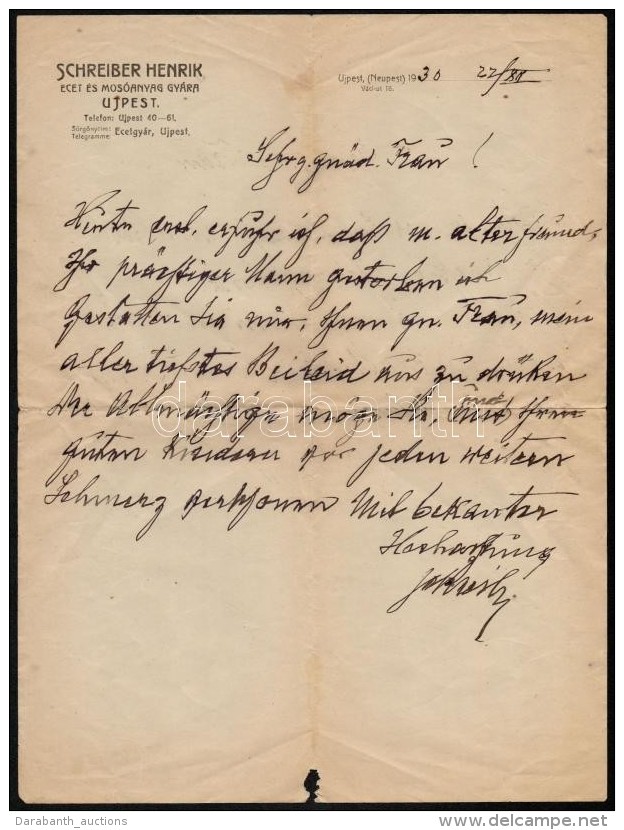 SCHREIBER HENRIK
ECET ÉS MOSÓANYAG GYÁRA
UJPEST.
Telefon: Ujpest 40—61.
Sürgönycim:
Telegramme: Ecetgyár, Ujpest.
Ujpest, (Neupest) 1930 22/XII
Váci-ut 16.
Sehr g. gnäd. Frau!
erfuhr ich, daß m. alter freund,
Ihr prächtiger Mann gestorben ist
Gestatten Sie mir, Ihnen gn. Frau, mein
aller tiefstes Beileid aus zu drüken
Der Allmächtige möge Sie, und Ihre
guten Kinder vor jeden weitern
Schmerz verschonen Mit bekanter
Hochachtung
darabanth
Darabanth_auctions
www.delcampe.net